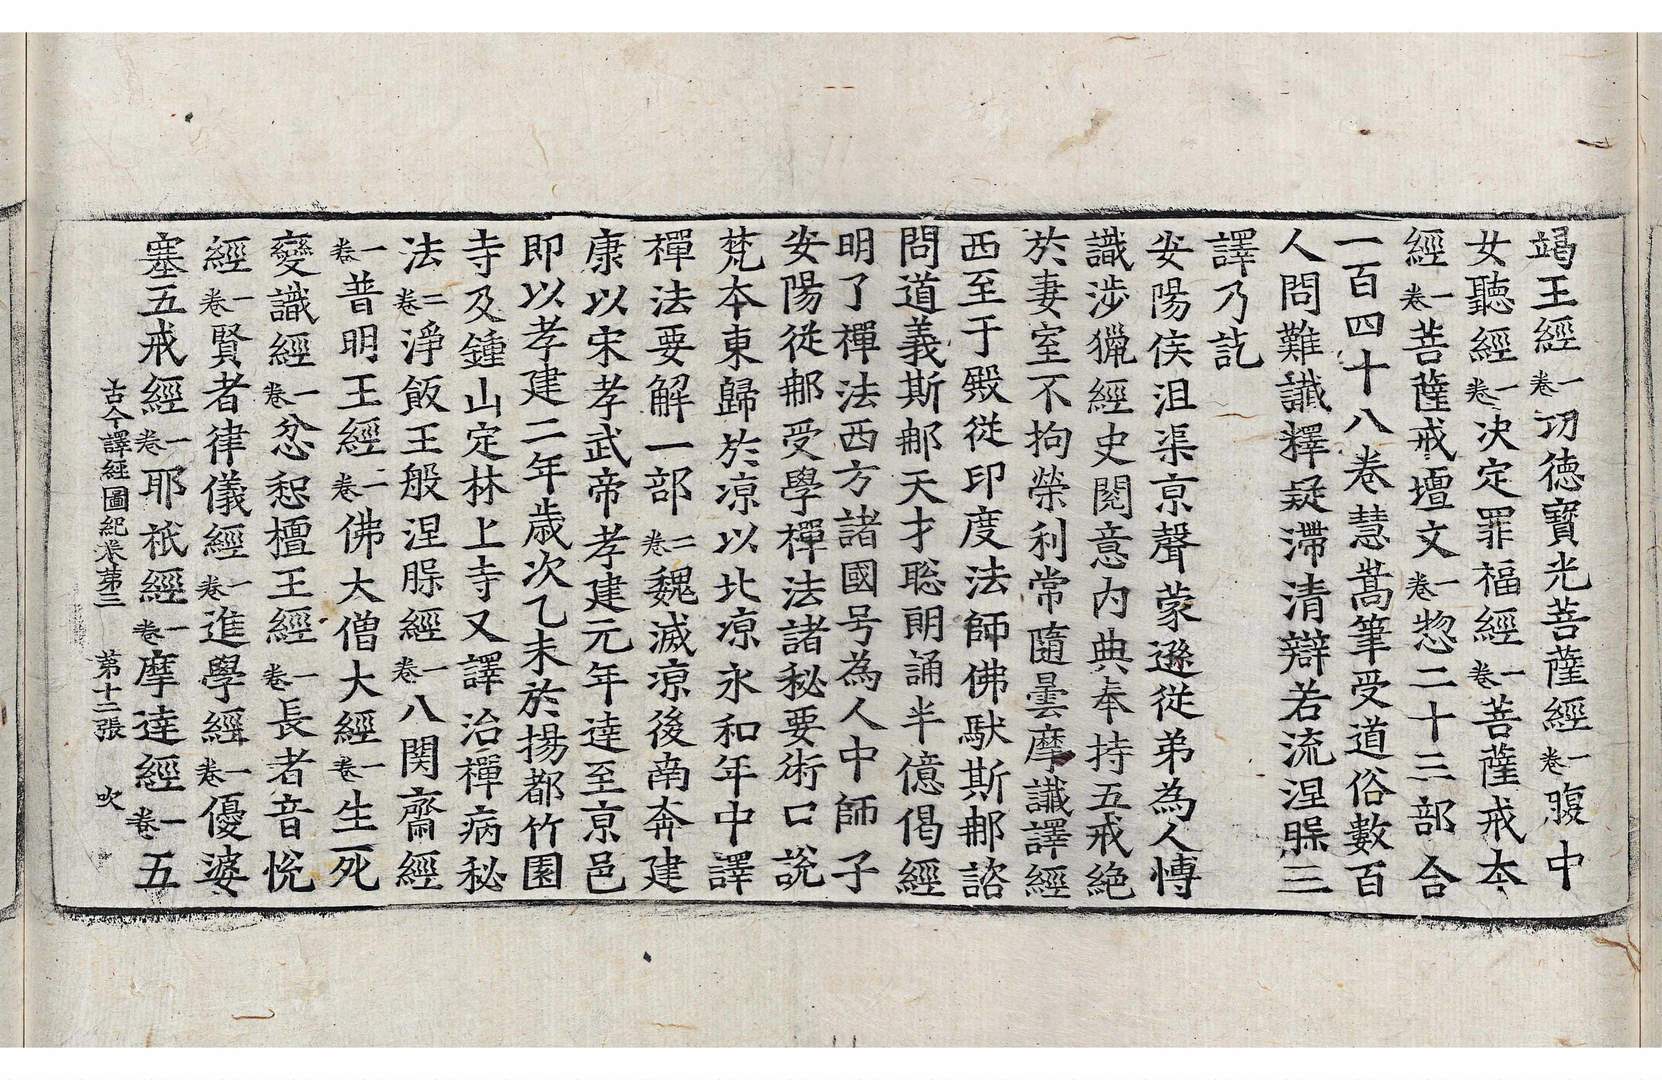 竭王經一卷功德寶光菩薩經一卷腹中
女聽經一卷決定罪福經一卷菩薩戒本
經一卷菩薩戒壇文一卷惣二十三部合
一百四十八卷慧嵩筆受道俗數百
人問難讖釋疑滯清辯若流涅槃三
譯乃訖
安陽侯沮渠京聲蒙遜從弟為人慱
識涉獵經史閱意內典奉持五戒絕
於妻室不拘榮利常隨曇摩讖譯經
西至于殿從印度法師佛馱斯那諮
問道義斯那天才聡朗誦半億偈經
明了禪法西方諸國号為人中師子
安陽從那受學禪法諸秘要術口說
梵夲東歸於涼以北涼永和年中譯
禪法要解一部二卷魏滅涼後南奔建
康以宋孝武帝孝建元年達至京邑
即以孝建二年歲次乙未於揚都竹園
寺及鍾山定林上寺又譯治禪病秘
法二卷淨飯王般涅槃經一卷八関齋經
一卷普明王經二卷佛大僧大經一卷生死
變識經一卷忿恕檀王經一卷長者音悅
經一卷賢者律儀經一卷進學經一卷優婆
塞五戒經一卷耶祇經一卷摩達經一卷五
古今譯經圖紀卷第三 第十二張 吹